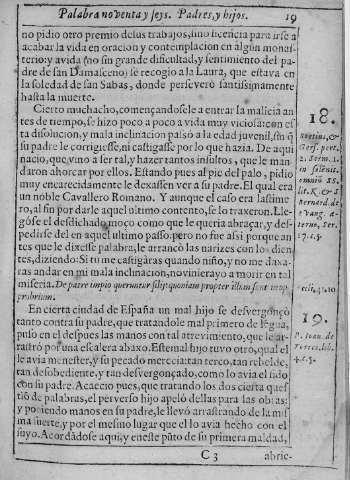 Palabra noventa y seys. Padres, y hijos. 19
no pidio otro premio de sus trabajos, sino licencia para irse a
acabar la vida en oracion y contemplacion en algun monas-
terio: y avida no sin grande dificultad, y sentimiento del pa-
dre de san Damasceno, se recogio a la Laura, que estava en
la soledad de san Sabas, donde perseverò santissimamente
hasta la muerte.
Cierto muchacho, començandosele a entrar la malicia an-
tes de tiempo, se hizo poco a poco a vida muy viciosa: con es-
ta disolucion, y mala inclinacion passò a la edad juvenil, sin q̃
su padre le corrigiesse, ni castigasse por lo que hazia. De aqui
nacio, que vino a ser tal, y hazer tantos insultos, que le man-
daron ahorcar por ellos. Estando pues al pie del palo, pidio
muy encarecidamente le dexassen ver a su padre. El qual era
un noble Cavallero Romano. Y aunque el caso era lastime-
ro, al fin por darle aquel ultimo contento, se lo traxeron. Lle-
gòse el desdichado moço como que le queria abraçar, y des-
pedirse del en aquel ultimo passo, pero no fue assi porque an
tes que le dixesse palabra, le arrancò las narizes con los dien-
tes, diziendo: Si tu me castigáras quando niño, y no me daxa-
ras andar en mi mala inclinacion, no viniera yo a morir en tal
miseria. De patre impio queruntur filij: quoniam propter illum sunt in op
probrium.
En cierta ciudad de España un mal hijo se desvergonçò
tanto contra su padre, que tratandole mal primero de légua,
puso en el despues las manos con tal atrevimiento, que le ar-
rastrò por una escalera abaxo. Este mal hijo tuvo otro, qual el
le avia menester, y su pecado merecia: tan terco, tan rebelde,
tan desobediente, y tan desvergonçado, como lo avia el sido
con su padre. Acaecio pues, que tratando los dos cierta ques
tiō de palabras, el perverso hijo apelò dellas para las obras:
y poniendo manos en su padre, le llevò arrastrando de la mis
ma suerte, y por el mesmo lugar que el lo avia hecho con el
suyo. Acordādose aqui, y en este pūto de su primera maldad,
C 3 abric-
18.
Gers. part.
2. Serm. 1.
in solenit.
omniū SS.
lit. K. & S
Bernard. de
Evang. æ-
terno, Ser.
Eccli, 41. 10
19.
P. Ioan. de
Torres, lib.
4. c. 3.